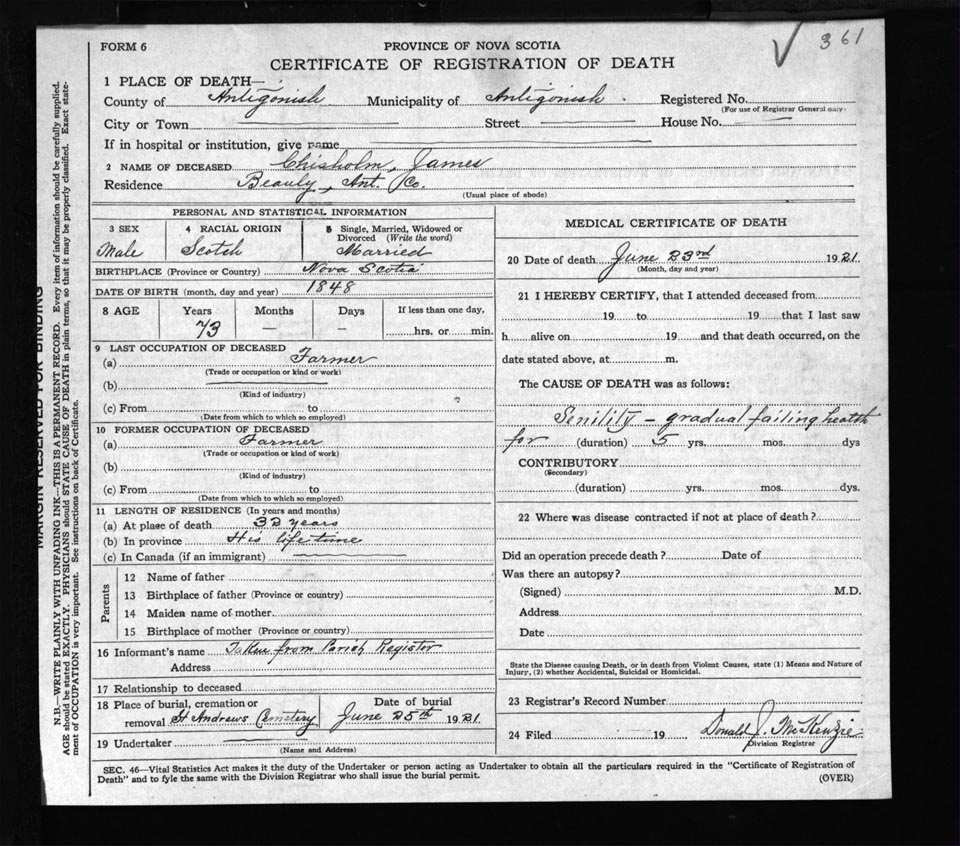 361
FORM 6
PROVINCE OF NOVA SCOTIA
CERTIFICATE OF REGISTRATION OF DEATH
1 PLACE OF DEATH—
County of Antigonish Municipality of Antigonish. Registered No.
(For use of Registrar General only)
City or Town Street House No.
If in hospital or institution, give name
2 NAME OF DECEASED Chisholm, James
Residence Beauly, Ant. Co.
(Usual place of abode)
PERSONAL AND STATISTICAL INFORMATION
3 SEX 4 RACIAL ORIGIN 5 Single, Married, Widowed or Divorced (Write the word)
Male Scotch Married
BIRTHPLACE (Province or Country) Nova Scotia
DATE OF BIRTH (month, day and year) 1848
8 AGE Years Months Days If less than one day,
73 — — hrs. or min.
9 LAST OCCUPATION OF DECEASED
(a) Farmer
(Trade or occupation or kind or work)
(b)
(Kind of industry)
(c) From to
(Date from which to which so employed)
10 FORMER OCCUPATION OF DECEASED
(a) Farmer
(Trade or occupation or kind of work)
(b)
(Kind of industry)
(c) From to
(Date from which to which so employed)
11 LENGTH OF RESIDENCE (In years and months)
(a) At place of death 32 years
(b) In province His life time
(c) In Canada (if an immigrant)
Parents
12 Name of father
13 Birthplace of father (Province or country)
14 Maiden name of mother
15 Birthplace of mother (Province or country)
16 Informant's name Taken from Parish Register
Address
17 Relationship to deceased
18 Place of burial, cremation or Date of burial
removal St Andrews Cemetery June 25th 1921.
19 Undertaker
(Name and Address)
MEDICAL CERTIFICATE OF DEATH
20 Date of death June 23rd 1921.
(Month, day and year)
21 I HEREBY CERTIFY, that I attended deceased from
19 to 19 that I last saw
h alive on 19 and that death occurred, on the
date stated above, at m.
The CAUSE OF DEATH was as follows:
Senility – gradual failing health
for (duration) 5 yrs. mos. dys
CONTRIBUTORY
(Secondary)
(duration) yrs. mos. dys.
22 Where was disease contracted if not at place of death?
Did an operation precede death? Date of
Was there an autopsy?
(Signed) M.D.
Address
Date
State the Disease causing Death, or in death from Violent Causes, state (1) Means and Nature of
Injury, (2) whether Accidental, Suicidal or Homicidal.
23 Registrar's Record Number
24 Filed 19 Donald J. McKenzie
Division Registrar
SEC. 46—Vital Statistics Act makes it the duty of the Undertaker or person acting as Undertaker to obtain all the particulars required in the "Certificate of Registration of
Death" and to fyle the same with the Division Registrar who shall issue the burial permit.
(OVER)
MARGIN RESERVED FOR BINDING
N.B.—WRITE PLAINLY WITH UNFADING INK—THIS IS A PERMANENT RECORD. Every item of information should be carefully supplied.
AGE should be stated EXACTLY. PHYSICIANS should STATE CAUSE OF DEATH in plain terms, so that it may be properly classified. Exact state-
ment of OCCUPATION is very important. See instructions on back of Certificate.